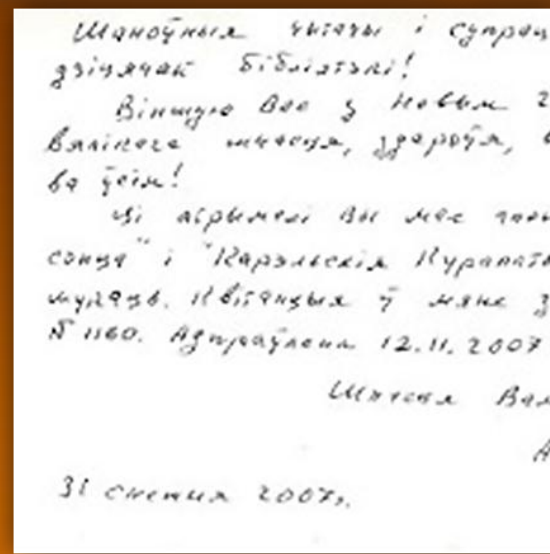 Шаноўныя чытачы і супрац
дзіцячай бібліятэкі!
Віншую Вас з Новым г
вялікага шчасця, здароўя,
ва ўсім!
Ці атрымалі Вы мае
сонца" і "Карэльскія Курапаты
Квітанцыя ў мяне з
№ 1160. Адпраўлена 12.11.2007
Шчасця Вам
А
31 снежня 2007г.